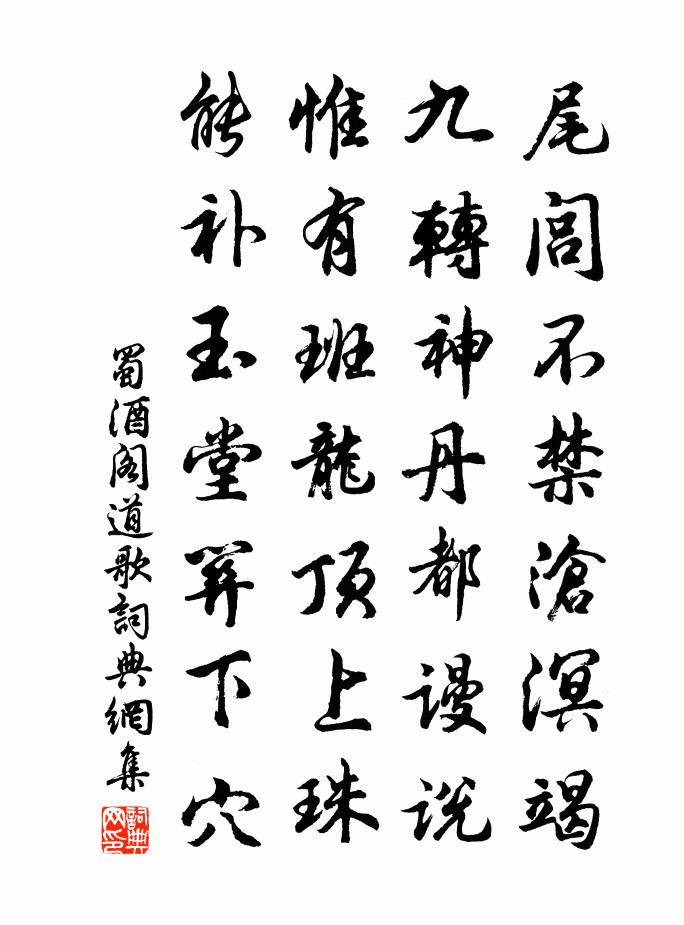 尾閭不禁滄溟竭
九轉神丹都謾說
惟有班龍頂上珠
能补玉堂關下穴
蜀酒閣道歌詞典網集
詞典网印